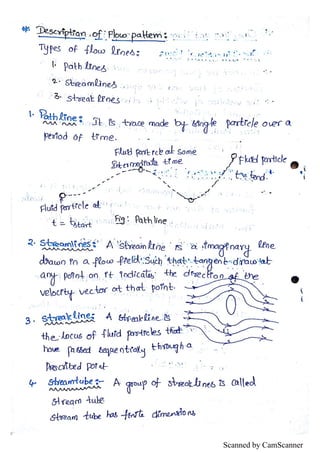 Description of Flow pattern:
Types of flow lines:
1. Path lines
2. Streamlines
3. streak lines
1. Path line: It is trace made by single particle over a
period of time.
Fluid particle at some
Intermediate time
Fluid particle
the end
Fluid particle at
t = tstart
Fig: Path line
2. Streamlines: A streamline is a imaginary line
drawn in a flow field such that tangent drawn at
any point on it indicates the direction of the
velocity vector at that point.
3. streakline: A streakline is
the locus of fluid particles that
have passed sequentially through a
Prescribed point
4 Streamtube:- A group of streaklines is called
stream tube
stream tube has finite dimensions
Scanned by CamScanner